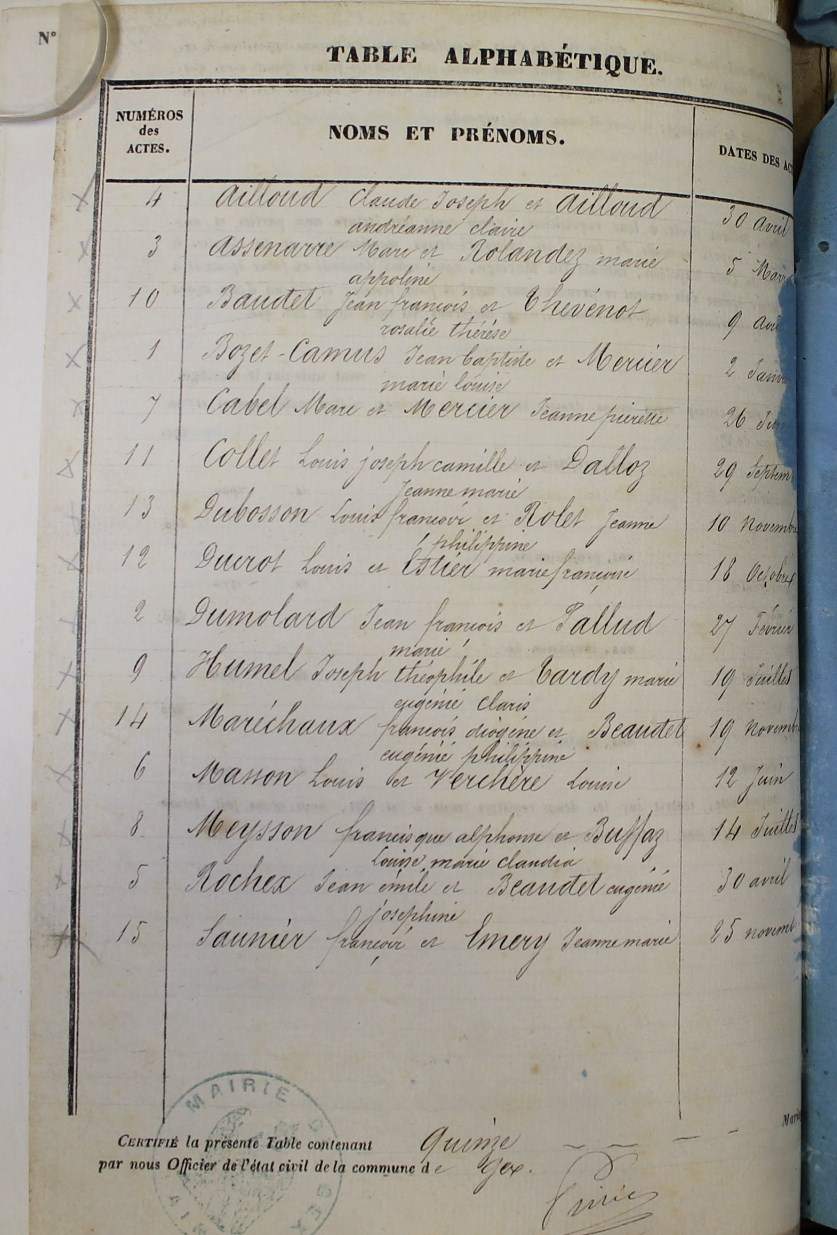 N°
TABLE ALPHABÉTIQUE.
NUMÉROS
des
ACTES.
NOMS ET PRÉNOMS.
DATES DES AC
4 Ailloud Claude Joseph et Ailloud 30 avril
andréanne claire
3 Assenarre Marc et Rolandez marie 5 Mar
appoline
10 Baudet Jean françois et Thevénot 9 Avr
rosalie thérése
1 Bozet-Camus Jean baptiste et Mercier 2 Janv
marie louise
7 Cabel Marc et Mercier Jeanne pierette 26
11 Collet Louis joseph camille et Dalloz 29 Septem
Jeanne marie
13 Dubosson Louis françois et Rolet Jeanne 10 Novembre
philippine
12 Ducrot Louis et Estier marie françoise 18 Octobre
2 Dumolard Jean françois et Pallud 27 Février
marie
9 Humel Joseph théophile et Tardy marie 19 Juillet
eugénie claris
14 Maréchaux françois diogéne et Beaudet 19 Novemb
eugénie philippine
6 Masson Louis et Verchère Louise 12 Juin
8 Meysson francisque alphonse et Buffaz 14 Juillet
Louise marie claudia
5 Rochex Jean émile et Beaudet eugénie 30 avril
josephine
15 Saunier françois et Emery Jeanne marie 25 novemb
MAIRIE DE GEX
CERTIFIÉ la présente Table contenant Quinze
par nous Officier de l'état civil de la commune de Gex.